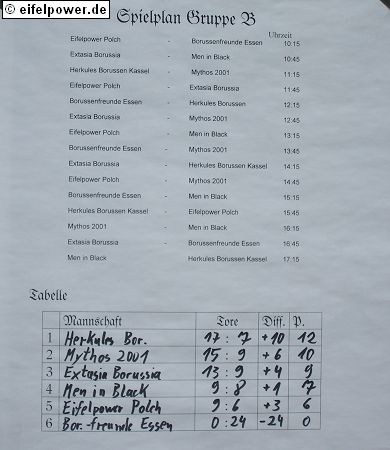 © eifelpower.de
Spielplan Gruppe B
Uhrzeit
Eifelpower Polch - Borussenfreunde Essen 10:15
Extasia Borussia - Men in Black 10:45
Herkules Borussen Kassel - Mythos 2001 11:15
Eifelpower Polch - Extasia Borussia 11:45
Borussenfreunde Essen - Herkules Borussen 12:15
Extasia Borussia - Mythos 2001 12:45
Eifelpower Polch - Men in Black 13:15
Borussenfreunde Essen - Mythos 2001 13:45
Extasia Borussia - Herkules Borussen Kassel 14:15
Eifelpower Polch - Mythos 2001 14:45
Borussenfreunde Essen - Men in Black 15:15
Herkules Borussen Kassel - Eifelpower Polch 15:45
Mythos 2001 - Men in Black 16:15
Extasia Borussia - Borussenfreunde Essen 16:45
Men in Black Herkules Borussen Kassel 17:15
Tabelle
Mannschaft Tore Diff. P.
1 Herkules Bor. 17 : 7 +10 12
2 Mythos 2001 15 : 9 +6 10
3 Extasia Borussia 13 : 9 +4 9
4 Men in Black 9 : 8 +1 7
5 Eifelpower Polch 9 : 6 +3 6
6 Bor.-freunde Essen 0 : 24 -24 0